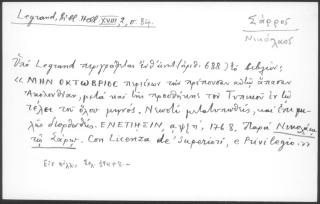 Legrand, Bibl. Hell. XVIII, 2, σ. 84.
Σάρρος
Νικόλαος
Ὑπὸ Legrand περιγράφεται (ἀριθ. 688) τὸ βιβλίον:
« ΜΗΝ ΟΚΤΩΒΡΙΟΣ περιέχων τὴν πρέπουσαν αὐτῷ ἅπασαν
Ἀκολουθίαν, μετὰ καὶ τῆς προσθήκης τοῦ Τυπικοῦ ἐν τῷ
τέλει τοῦ ὅλου μηνός. Νεωστὶ μετατυπωθείς, καὶ ἐπιμε-
λῶς διορθωθείς. ΕΝΕΤΙΗΣΙΝ, αψξη΄, 1768. Παρὰ Νικολάῳ
τῷ Σάρῳ. Con Licenza de' Superiori, e Privilegio.»